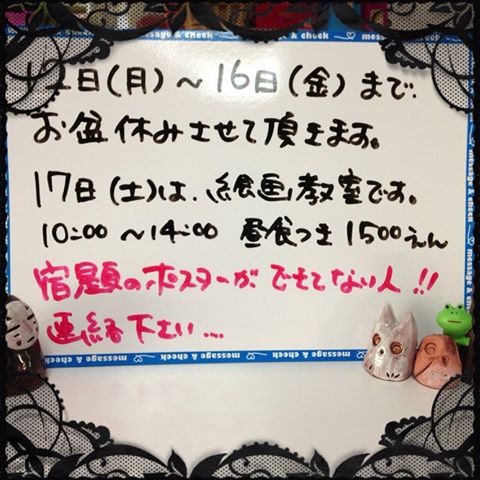 message & check
12日(月)～16日(金)まで、
お盆休みさせて頂きます。
17日(土)は、絵画教室です。
10:00～14:00 昼食つき1500えん
宿題のポスターができてない人!!
連絡下さい…
message & check
message & check
message & check
message & check
message & check